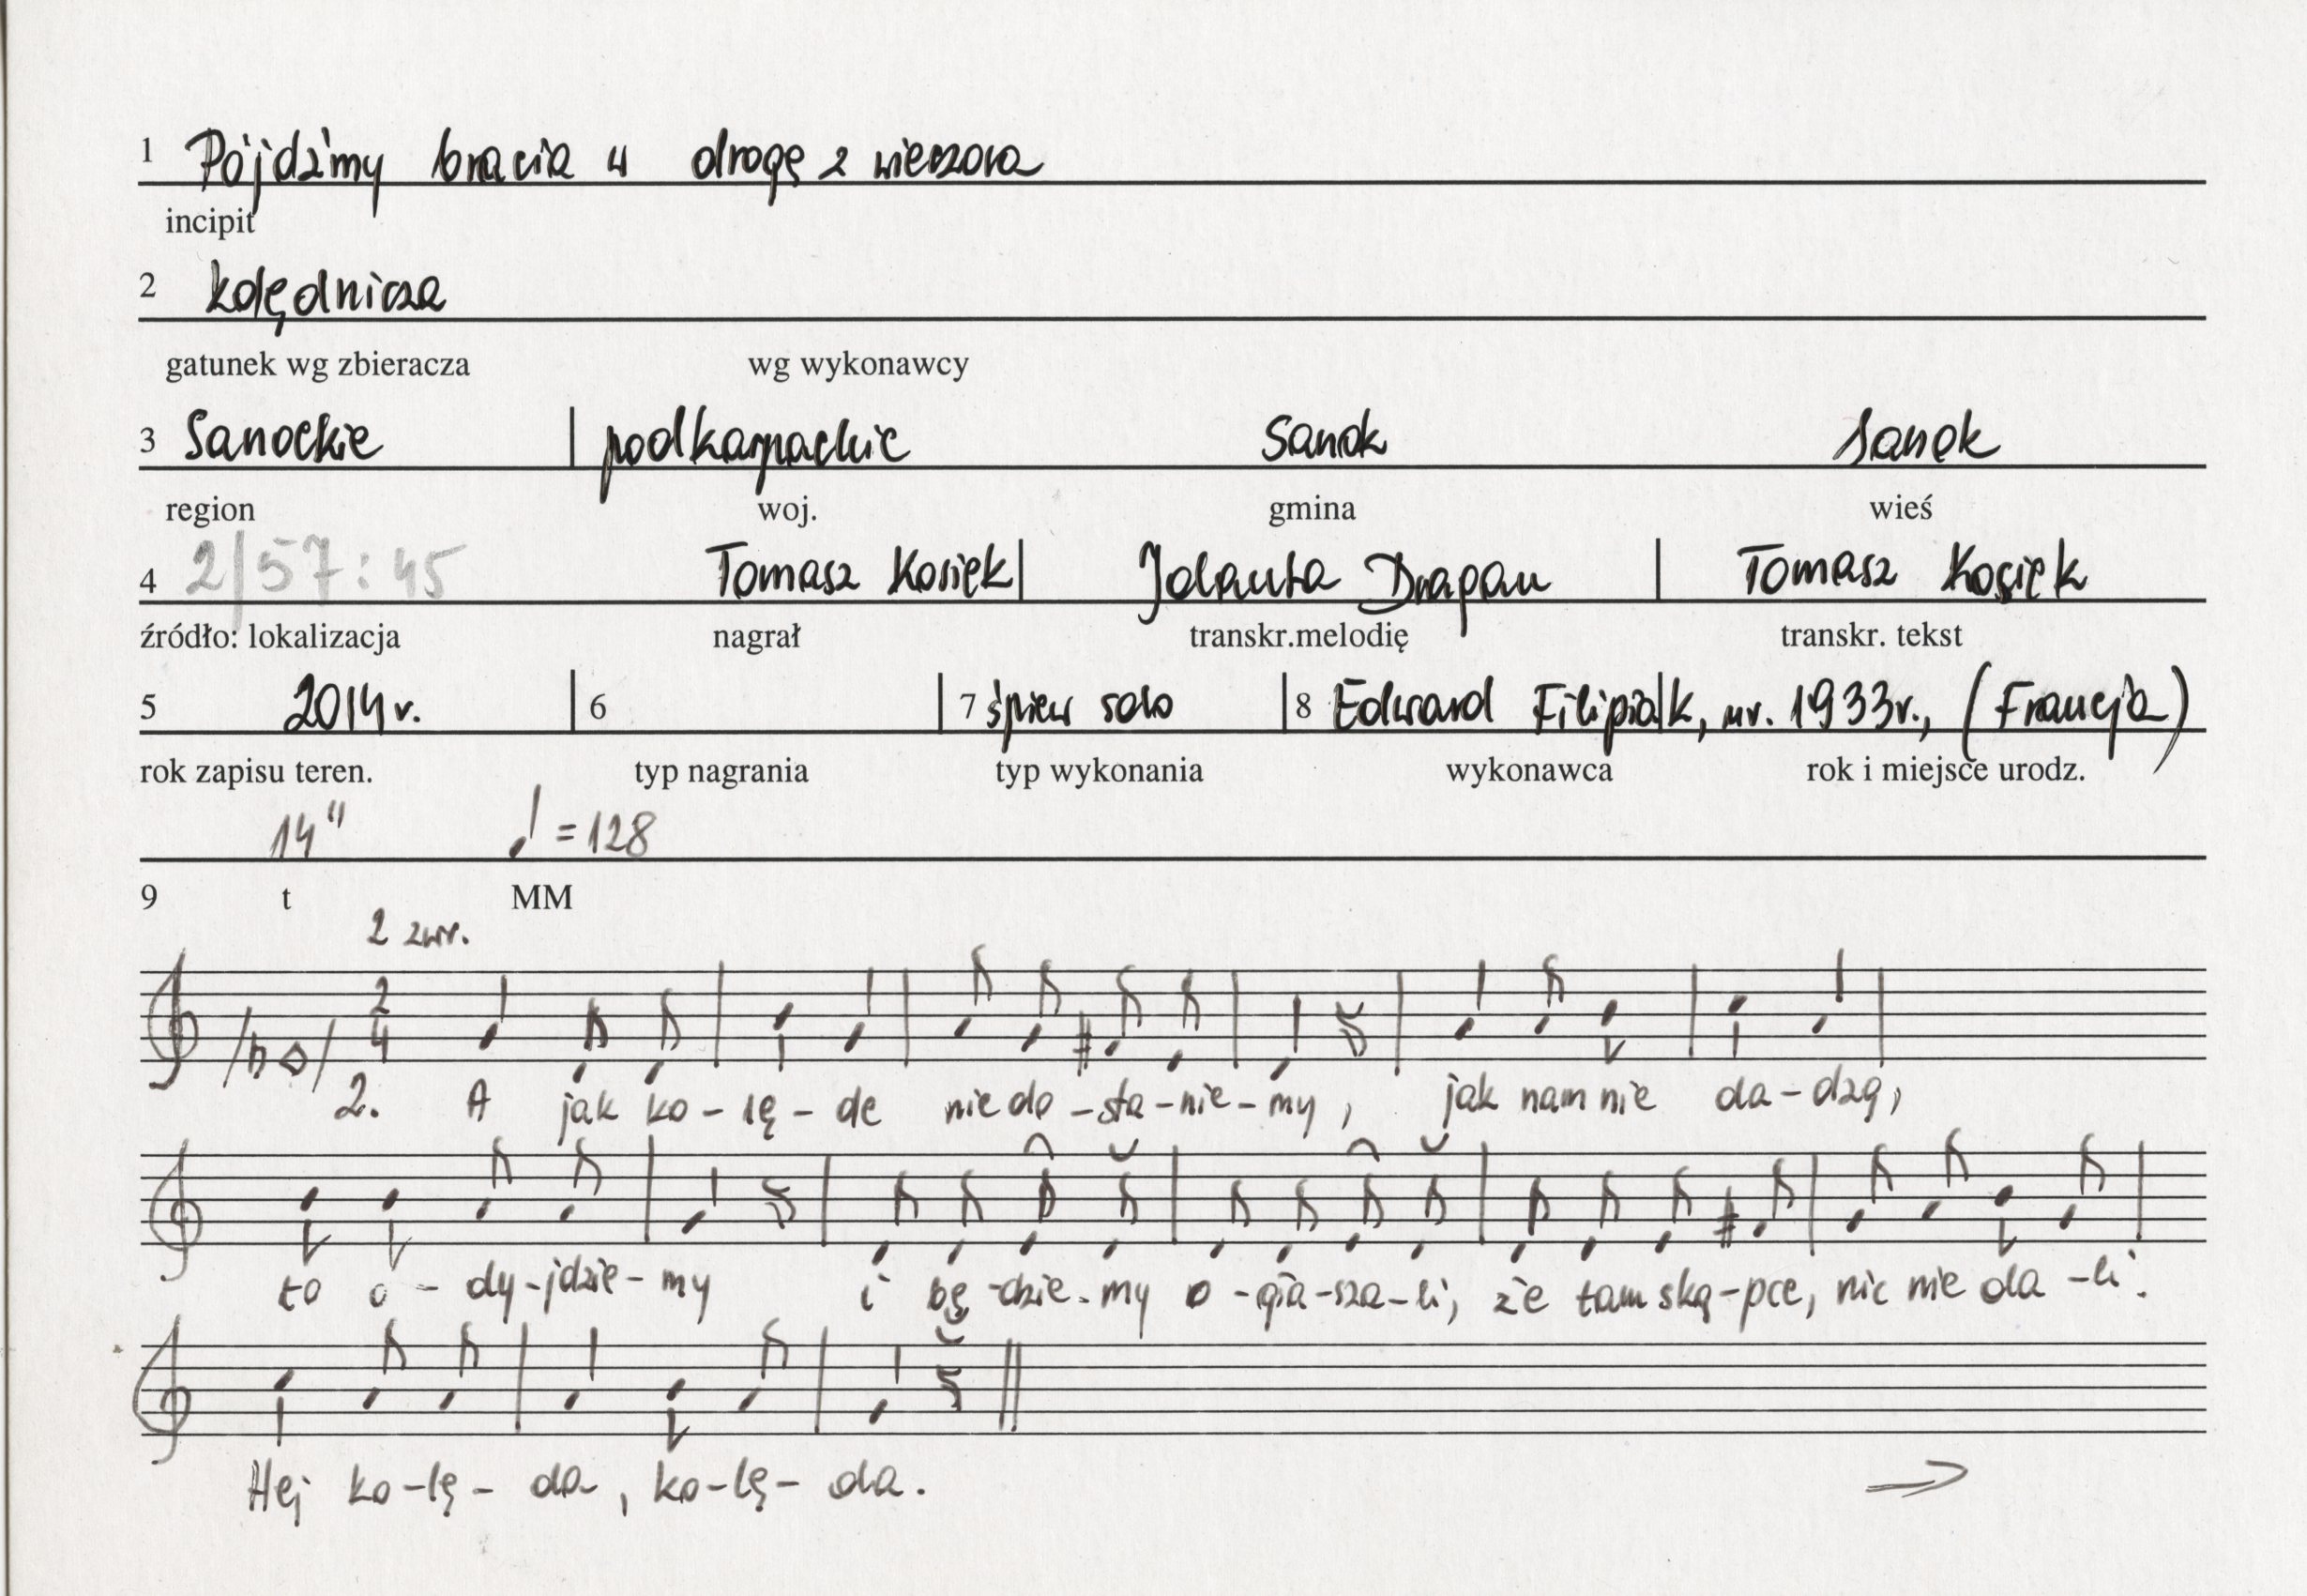 1 Pójdźmy bracia w drogę z wieczora
incipit
2 kolędnicza
gatunek wg zbieracza wg wykonawcy
3 Sanockie | podkarpackie Sanok Sanok
region woj. gmina wieś
4 2/57:45 Tomasz Kosiek | Jolanta Drapan | Tomasz Kosiek
źródło: lokalizacja nagrał transkr.melodię transkr. tekst
5 2014r. | 6 | 7 śpiew solo | 8 Edward Filipiak, ur. 1933r., (Francja)
rok zapisu teren. typ nagrania typ wykonania wykonawca rok i miejsce urodz.
14" ♩ = 128
9 t MM
2 zwr.
2 4
2. A jak ko-lę-de nie do-sta-nie-my, jak nam nie da-dzą,
to o-dy-jdzie-my i bę-dzie-my o-gła-sza-li, że tam ską-pce, nic nie da-li.
Hej ko-lę-da, ko-lę-da.